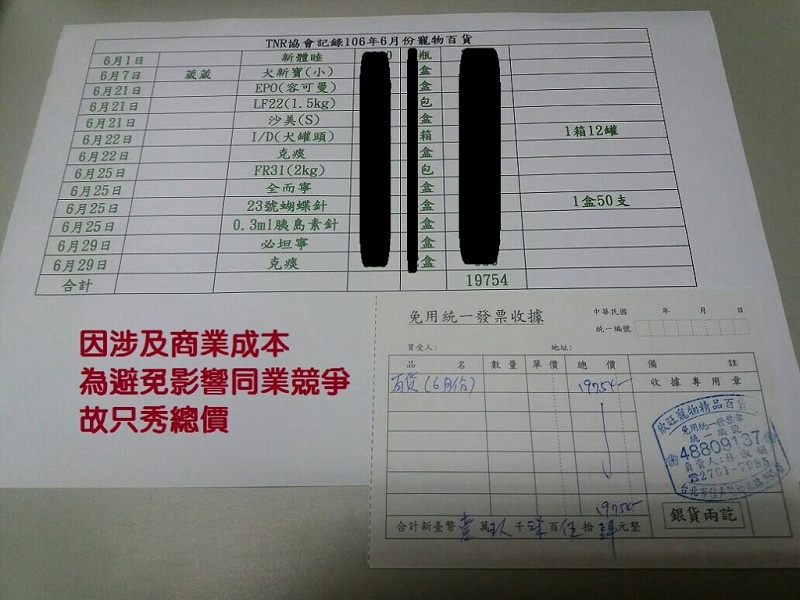 TNR協會記錄106年6月份寵物百貨
6月1日 新體睦 瓶
6月7日 葳葳 犬新寶(小) 盒
6月21日 EPO(容可曼) 盒
6月21日 LF22(1.5kg) 包
6月21日 沙美(S) 盒
6月22日 I/D(犬罐頭) 箱 1箱12罐
6月22日 克痰 盒
6月25日 FR31(2kg) 包
6月25日 全而寧 盒
6月25日 23號蝴蝶針 盒 1盒50支
6月25日 0.3ml胰島素針 盒
6月29日 必坦寧 盒
6月29日 克痰 盒
合計 19754
因涉及商業成本
為避免影響同業競爭
故只秀總價
免用統一發票收據
中華民國 年 月 日
統一編號
買受人: 地址:
品名 數量 單價 總價 備註
百貨(6月份) 19754- 收據專用章
寵物精品百貨
免用統一發票章
統一編號
48809137
負責人:林
☎2761-7985
台北市信義
19754-
合計新臺幣壹萬玖千柒百伍拾肆元整
銀貨兩訖